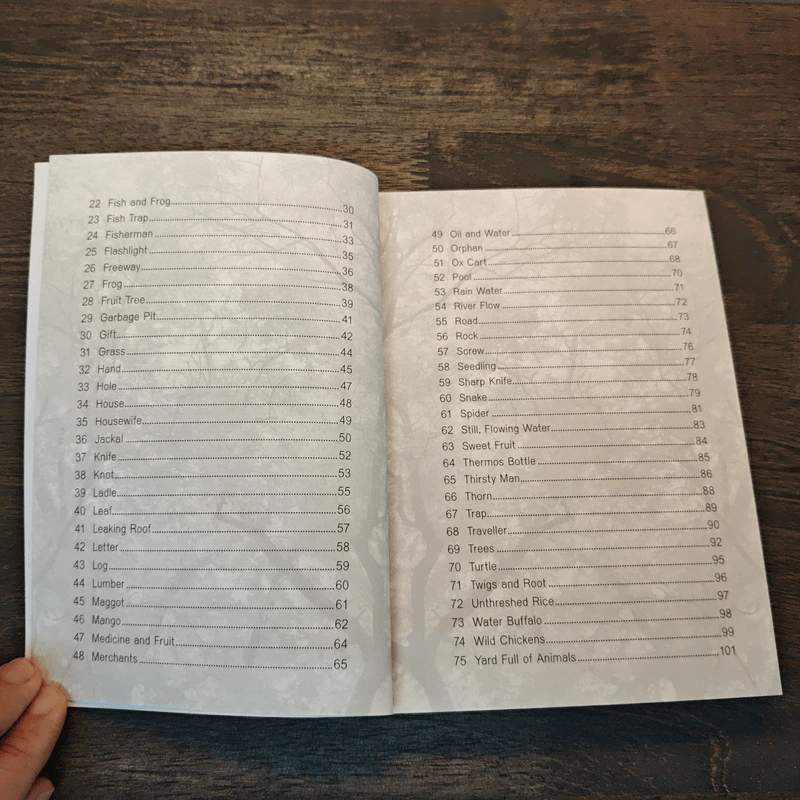 22 Fish and Frog 30
23 Fish Trap 31
24 Fisherman 33
25 Flashlight 35
26 Freeway 36
27 Frog 38
28 Fruit Tree 39
29 Garbage Pit 41
30 Gift 42
31 Grass 44
32 Hand 45
33 Hole 47
34 House 48
35 Housewife 49
36 Jackal 50
37 Knife 52
38 Knot 53
39 Ladle 55
40 Leaf 56
41 Leaking Roof 57
42 Letter 58
43 Log 59
44 Lumber 60
45 Maggot 61
46 Mango 62
47 Medicine and Fruit 64
48 Merchants 65
49 Oil and Water 66
50 Orphan 67
51 Ox Cart 68
52 Pool 70
53 Rain Water 71
54 River Flow 72
55 Road 73
56 Rock 74
57 Screw 76
58 Seedling 77
59 Sharp Knife 78
60 Snake 79
61 Spider 81
62 Still, Flowing Water 83
63 Sweet Fruit 84
64 Thermos Bottle 85
65 Thirsty Man 86
66 Thorn 88
67 Trap 89
68 Traveller 90
69 Trees 92
70 Turtle 95
71 Twigs and Root 96
72 Unthreshed Rice 97
73 Water Buffalo 98
74 Wild Chickens 99
75 Yard Full of Animals 101